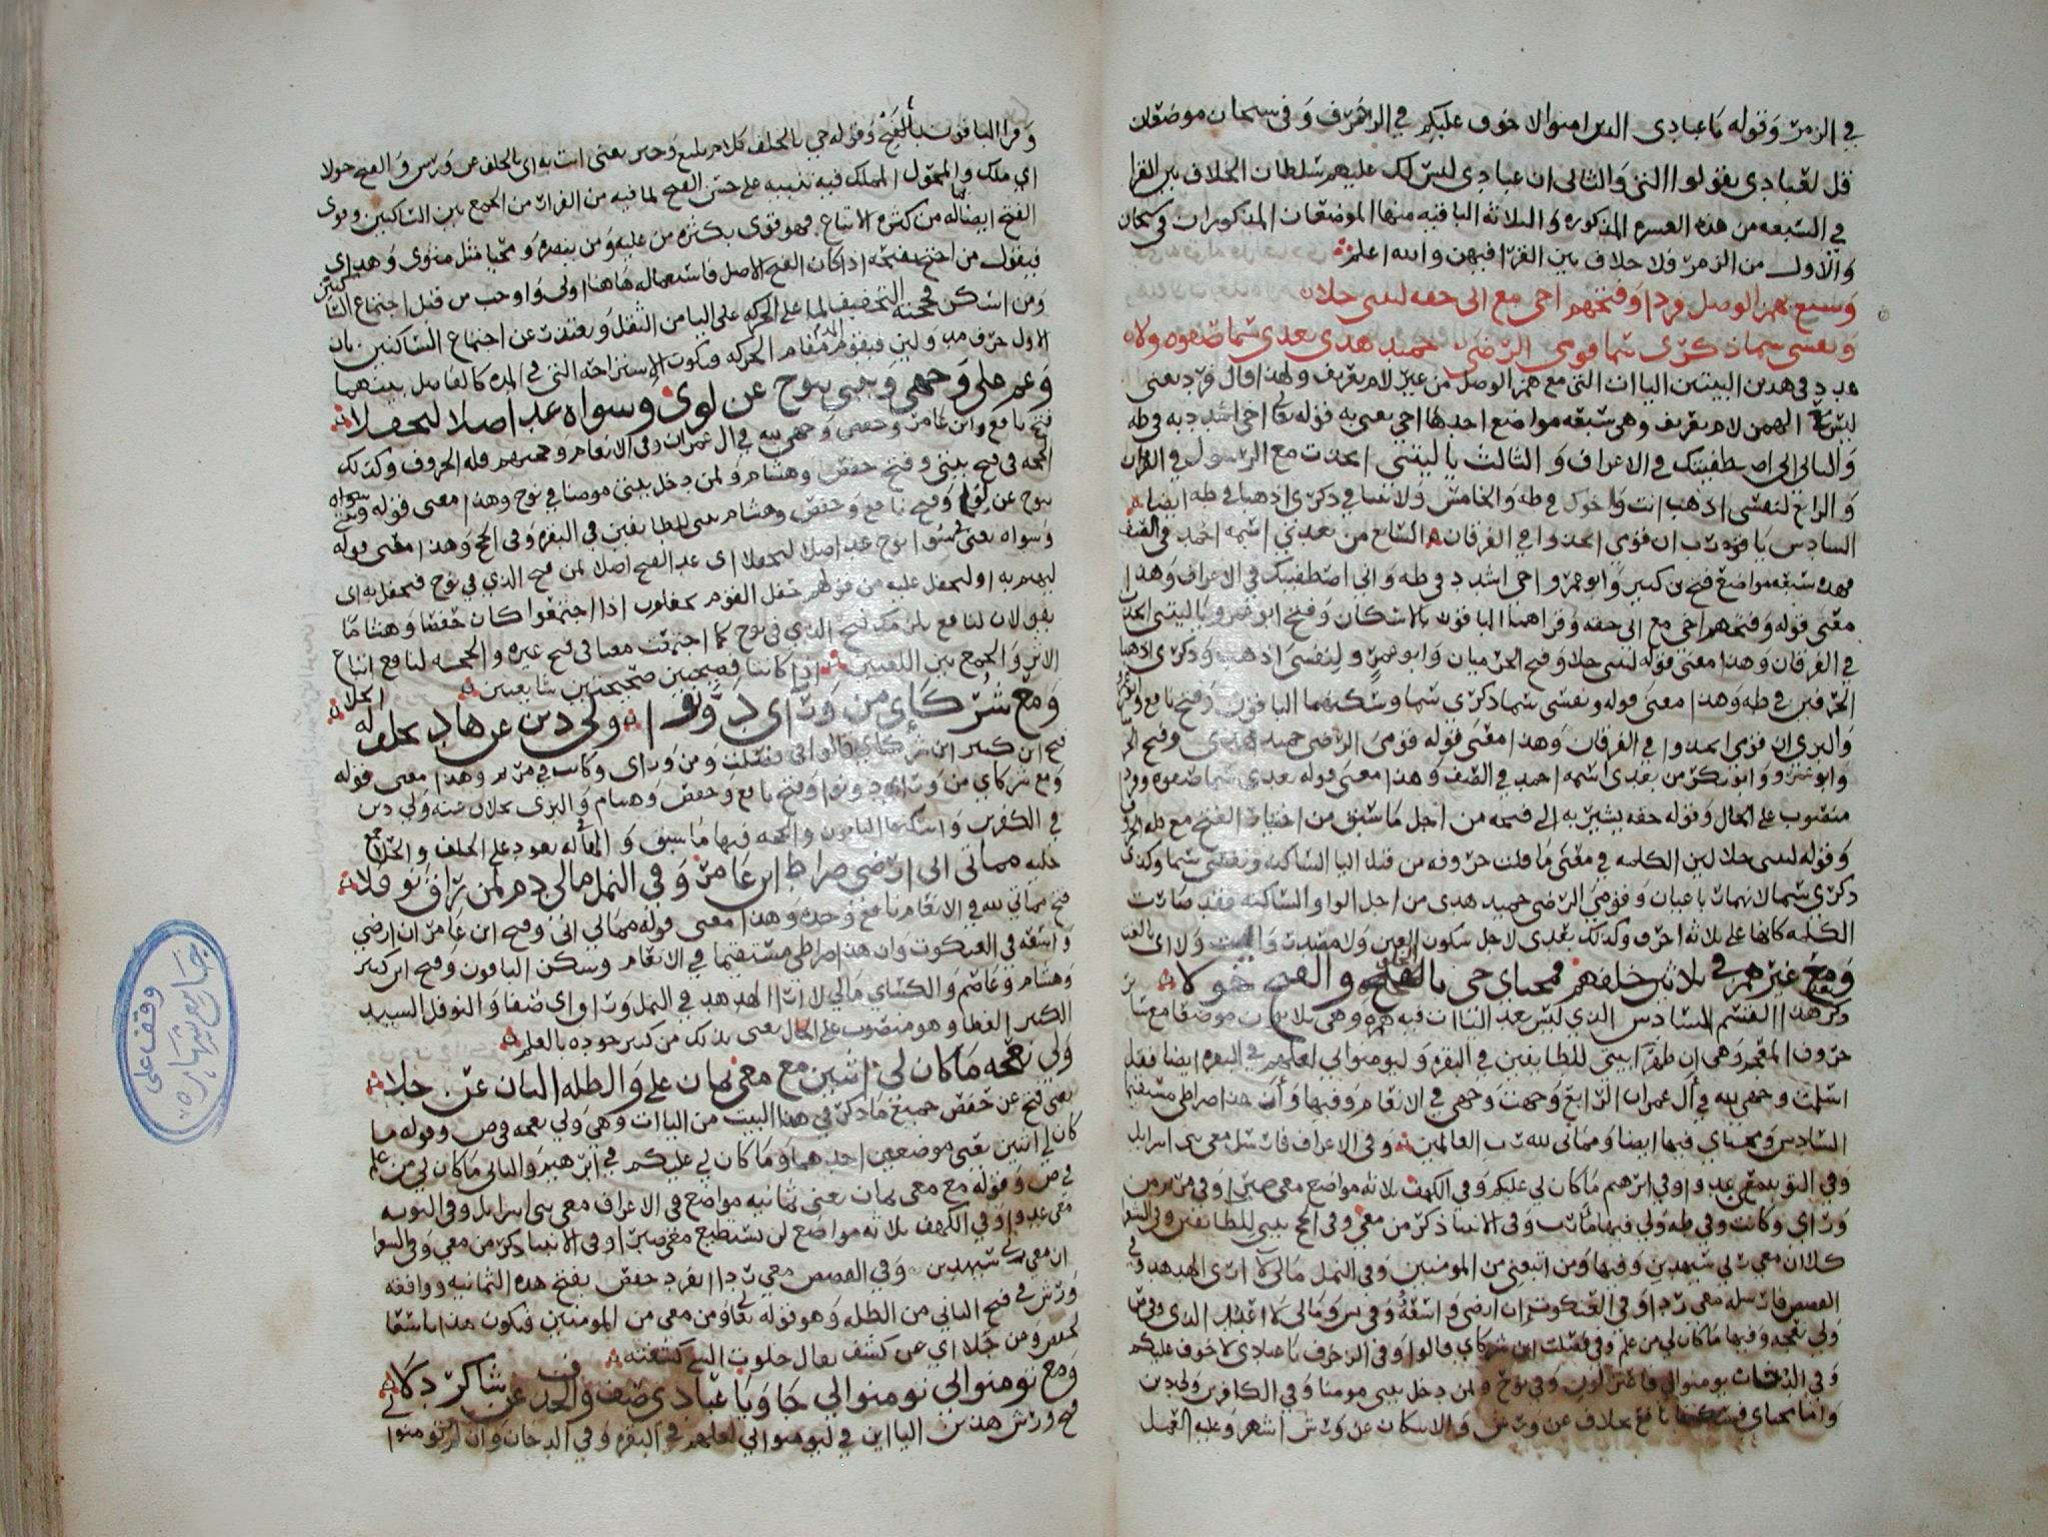 في الزمر وقوله يا عبادي الذين امنوا لا خوف عليكم في الزخرف وفي سبحان موضعان
قل لعبادي يقولوا التي والثاني ان عبادي ليس لك عليهم سلطان الخلاف بين القرا
في السبعه من هذه العشره المذكوره والثلاثه الباقيه منها الموضعان المذكوران في سبحان
والاول من الزمر فلا خلاف بين القرا فيهن والله اعلم
وسبع بهمز الوصل فردا وفتحهم اخي مع اني حقه ليتني حلا
ونفسي سما ذكري سما قومي الرضى حميد هدى بعدي سما صفوه ولا
عدد في هذين البيتين الياات التي مع همز الوصل من غير لام تعريف ولهذا قال فردا يعني
ليس الهمز لام تعريف وهي سبعه مواضع احدها اخي يعني به قوله تعالى اخي اشدد به في طه
والثاني اني اصطفيتك في الاعراف والثالث يا ليتني اتخذت مع الرسول في الفرقان
والرابع لنفسي اذهب انت واخوك في طه والخامس ولا تنيا في ذكري اذهبا في طه ايضا
السادس يا رب ان قومي اتخذوا في الفرقان السابع من بعدي اسمه احمد في الصف
فهذه سبعه مواضع فتح بن كثير وابو عمرو اخي اشدد في طه واني اصطفيتك في الاعراف وهذا
معنى قوله وفتحهم اخي مع اني حقه وقراهما الباقون بالاسكان وفتح ابو عمرو يا ليتني اتخذت
في الفرقان وهذا معنى قوله ليتني حلا وفتح الحرميان وابو عمرو لنفسي اذهب وذكري اذهبا
الحرفين في طه وهذا معنى قوله ونفسي سما ذكري سما وسكنهما الباقون وفتح نافع وابو عمرو
والبزي ان قومي اتخذوا في الفرقان وهذا معنى قوله قومي الرضى حميد هدى وفتح
وابو عمرو وابو بكر من بعدي اسمه احمد في الصف وهذا معنى قوله بعدي سما صفوه
منصوب على الحال وقوله حقه يشير به الى فتحه من اجل ما سبق من اختيار الفتح مع
وقوله ليتني حلا لين الكلمه في معنى ما قلت حروفه من قبل اليا الساكنه ونفسي سما وكذلك
ذكري سما لانهما وقومي الرضى حميد هدى من اجل الواو الساكنه فقد صارت
الكلمه كانها على ثلاثه احرف وكذلك بعدي لاجل سكون العين
ومع غير همز في ثلاثين خلفهم ومحياي جي بالخلف والفتح خولا
ذكر هذا القسم السادس الذي ليس بعد الياات فيه همزه وهي ثلاثون موضعا مع سائر
حروف المعجم وهي ان طهرا بيتي للطائفين في البقره وليومنوا بي لعلهم في البقره ايضا فقل
اسلمت وجهي لله في آل عمران الرابع وجهت وجهي في الانعام وفيها وان هذا صراطي مستقيما
السادس ومحياي فيها ايضا ومماتي لله رب العالمين وفي الاعراف فارسل معي بني اسرايل
وفي التوبه معي عدوا وفي ابرهيم ما كان لي عليكم وفي الكهف ثلاثه مواضع معي صبرا وفي مريم من
وراي وكانت وفي طه ولي فيها مآرب وفي الانبيا ذكر من معي وفي الحج بيتي للطائفين وفي الشعرا
كلا ان معي ربي سيهدين وفيها ومن اتبعني من المومنين وفي النمل مالي لا ارى الهدهد وفي
القصص فارسله معي ردا وفي العنكبوت ان ارضي واسعه وفي يس ومالي لا اعبد الذي وفي ص
ولي نعجه وفيها ما كان لي من علم وفي فصلت اين شركاي قالوا وفي الزخرف يا عبادي لا خوف عليكم
وفي الدخان تومنوا لي فاعتزلون وفي نوح ولمن دخل بيتي مومنا وفي الكافرين ولي دين
واما محياي فسكنها نافع بخلاف عن ورش والاسكان عن ورش اشهر وعليه العمل
وقرا الباقون بالفتح وقوله جي بالخلف كلام مليح وجيد يعني ائت به اي بالخلف عن ورش والفتح خولا
اي ملك والمخول المملك فيه تنبيه على حسن الفتح لما فيه من الفرار من الجمع بين الساكنين وقوى
الفتح ايضا ما له من كثره الاتباع فهو قوي بكثره من عليه ومن ينصره ومحيا مثل مثوى وهداي
فيقول من احتج بفتحه اذا كان الفتح الاصل فاستعماله هاهنا اولى واوجب من قبل اجتماع الساكنين
ومن اسكن فحجته التخفيف لما على الحركه على اليا من الثقل ويعتذر عن اجتماع الساكنين بان
الاول حرف مد ولين فيقوم المد مقام الحركه وتكون الاستراحه التي في المده كالفاصل بينهما
وعم علا وجهي وبيتي بنوح عن لوى وسواه عد اصلا ليحفلا
فتح نافع وابن عامر وحفص وجهي لله في ال عمران وفي الانعام وحجتهم قله الحروف وكذلك
الحجه في فتح بيتي وفتح حفص وهشام ولمن دخل بيتي مومنا في نوح وهذا معنى قوله وبيتي
بنوح عن لوى وفتح نافع وحفص وهشام بيتي للطائفين في البقره وفي الحج وهذا معنى قوله وسواه
وسواه يعني سوى نوح عد اصلا ليحفلا اي عد الفتح اصلا لمن فتح الذي في نوح فيحفل به اي
ليهتم به او ليحفل عليه من قولهم حفل القوم يحفلون اذا اجتمعوا كان حفصا وهشاما
يقولان لنافع يلزمك فتح الذي في نوح كما اجتمعت معنا في فتح غيره والحجه لنافع اتباع
الاثر والجمع بين اللغتين اذا كانتا فصيحتين صحيحتين شايعتين
ومع شركاي من وراي دونوا ولي دين عن هاد بخلف له الحلا
فتح ابن كثير اين شركاي قالوا في فصلت ومن وراي وكانت في مريم وهذا معنى قوله
ومع شركاي من وراي دونوا وفتح نافع وحفص وهشام والبزي بخلاف عنه ولي دين
في الكافرين واسكنها الباقون والحجه فيها ما سبق والها في له يعود على الخلف والحلا جمع
حليه مماتي اتى ارضي صراطي ابن عامر وفي النمل مالي دم لمن راق نوفلا
فتح مماتي لله في الانعام نافع وحده وهذا معنى قوله مماتي اتى وفتح ابن عامر ان ارضي
واسعه في العنكبوت وان هذا صراطي مستقيما في الانعام وسكن الباقون وفتح ابن كثير
وهشام وعاصم والكساي مالي لا ارى الهدهد في النمل وراق اي صفا والنوفل السيد
الكثير العطا وهو منصوب على الحال يعني بذلك من كثير جوده بالعلم
ولي نعجه ما كان لي اثنين مع معي ثمان علا والظله الثان عن جلا
يعني فتح عن حفص جميع ما ذكر في هذا البيت من الياات وهي ولي نعجه في ص وقوله ما
كان لي اثنين يعني موضعين احدهما وما كان لي عليكم في ابرهيم والثاني ما كان لي من علم
في ص وقوله مع معي ثمان يعني ثمانيه مواضع في الاعراف معي بني اسرايل وفي التوبه
معي عدوا وفي الكهف ثلاثه مواضع لن تستطيع معي صبرا وفي الانبيا ذكر من معي وفي الشعرا
ان معي ربي سيهدين وفي القصص معي ردا انفرد حفص بفتح هذه الثمانيه ووافقه
ورش في فتح الثاني من الظله وهو قوله تعالى ومن معي من المومنين فيكون هذا تاسعا
لحفص وعن جلا اي عن كشف يقال جلوت الشي كشفته
ومع تومنوا لي يومنوا بي جا ويا عبادي صف والحذف عن شاكر دلا
فتح ورش هذين الياين في ليومنوا بي لعلهم في البقره وفي الدخان وان لم تومنوا لي
وقف على
جامع شهاره